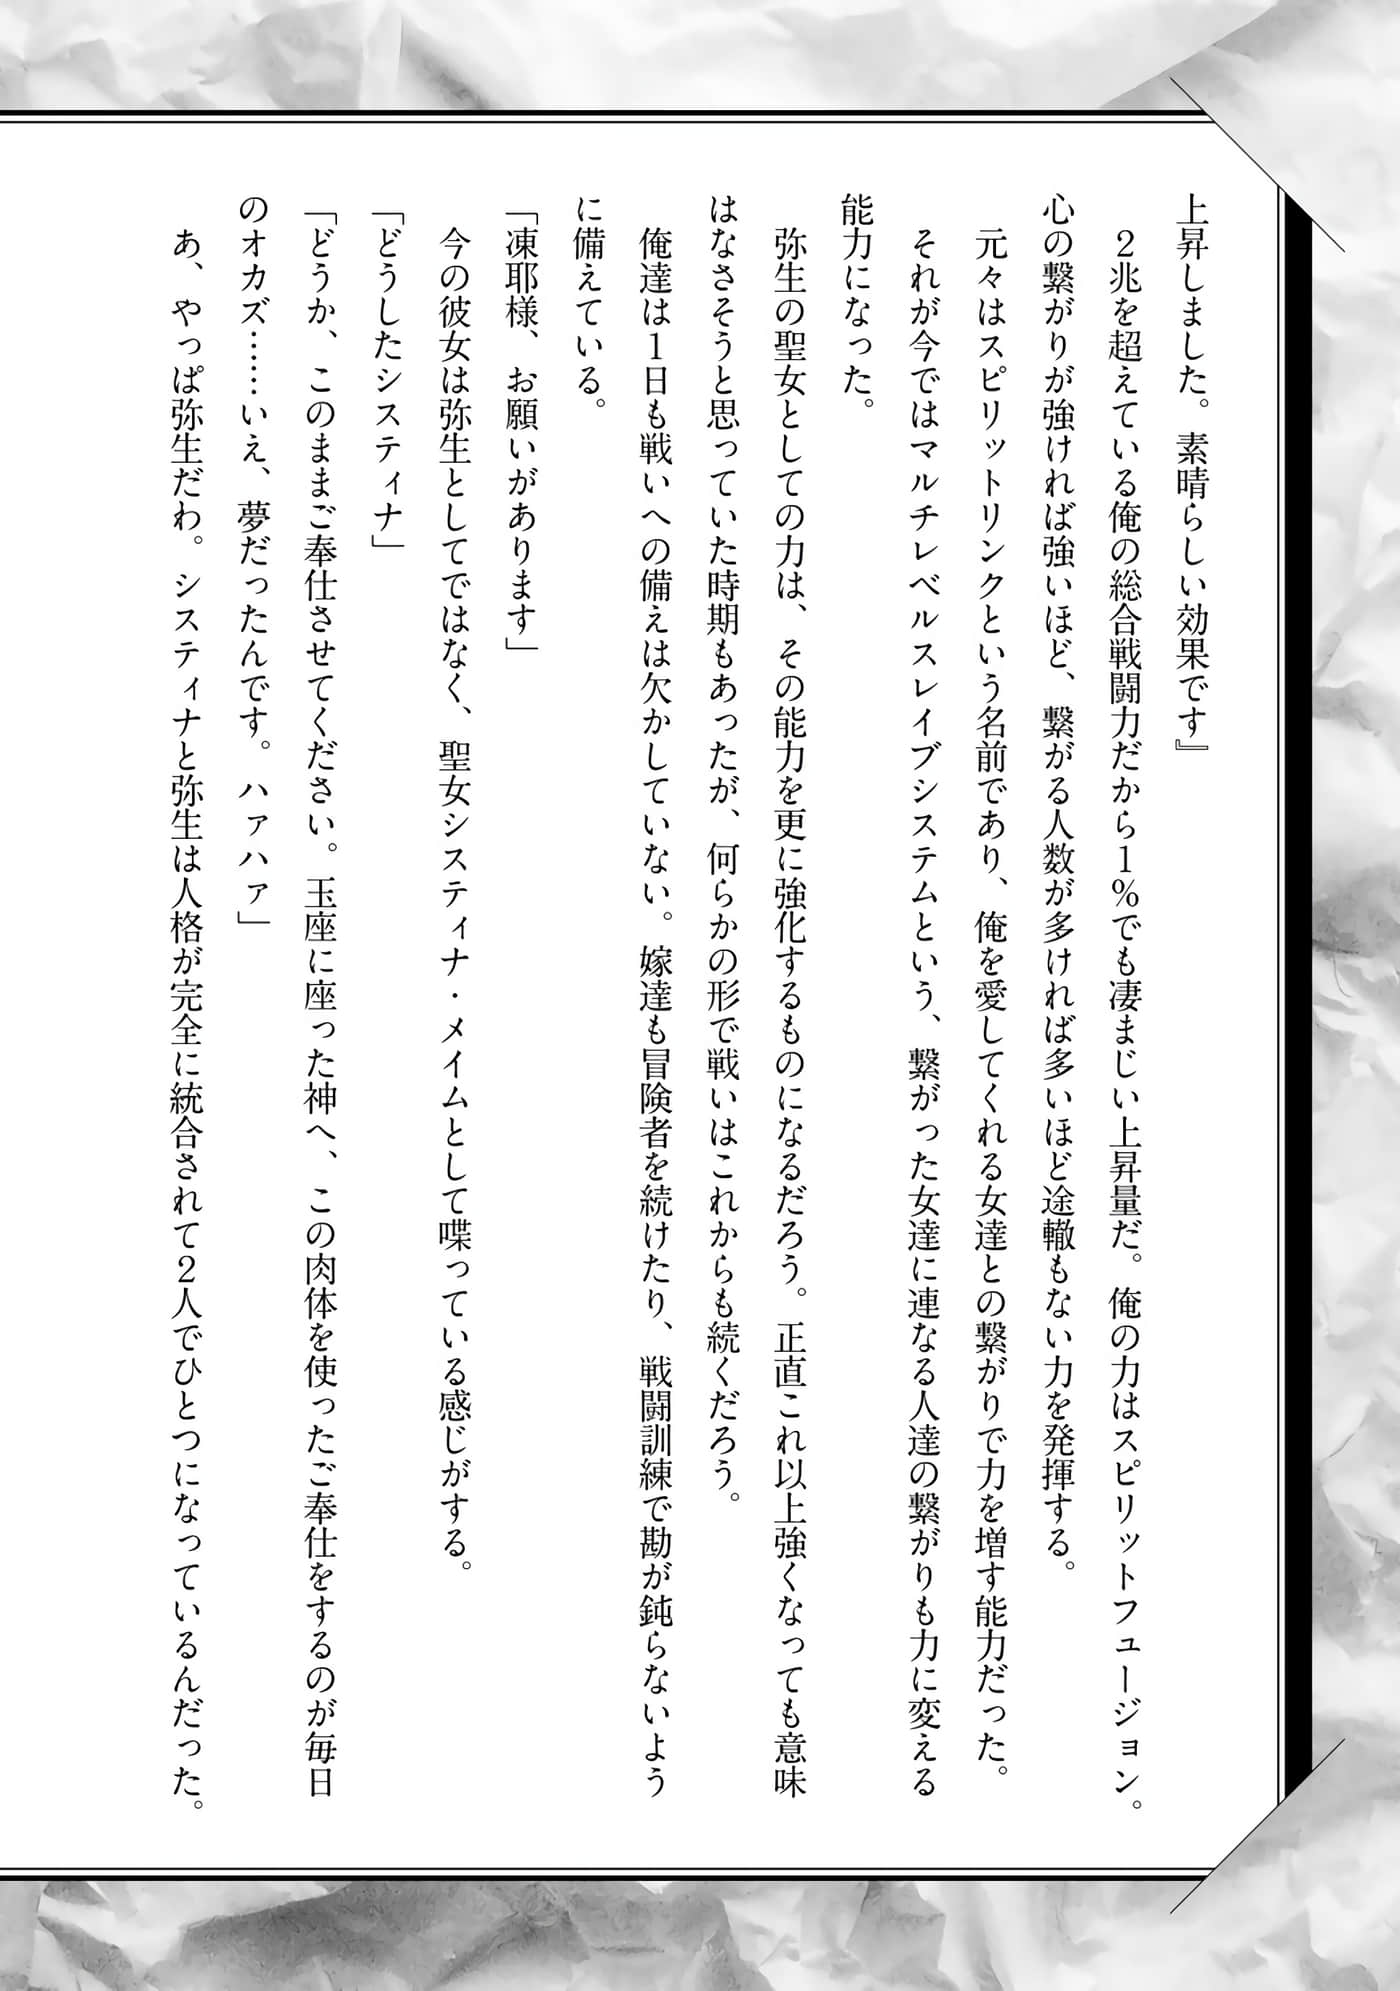 上昇しました。素晴らしい効果です』
　２兆を超えている俺の総合戦闘力だから１％でも凄まじい上昇量だ。俺の力はスピリットフュージョン。
心の繋がりが強ければ強いほど、繋がる人数が多ければ多いほど途轍もない力を発揮する。
　元々はスピリットリンクという名前であり、俺を愛してくれる女達との繋がりで力を増す能力だった。
　それが今ではマルチレベルスレイブシステムという、繋がった女達に連なる人達の繋がりも力に変える
能力になった。
　弥生の聖女としての力は、その能力を更に強化するものになるだろう。正直これ以上強くなっても意味
はなさそうと思っていた時期もあったが、何らかの形で戦いはこれからも続くだろう。
　俺達は１日も戦いへの備えは欠かしていない。嫁達も冒険者を続けたり、戦闘訓練で勘が鈍らないよう
に備えている。
「凍耶様、お願いがあります」
　今の彼女は弥生としてではなく、聖女システィナ・メイムとして喋っている感じがする。
「どうしたシスティナ」
「どうか、このままご奉仕させてください。玉座に座った神へ、この肉体を使ったご奉仕をするのが毎日
のオカズ……いえ、夢だったんです。ハァハァ」
　あ、やっぱ弥生だわ。システィナと弥生は人格が完全に統合されて２人でひとつになっているんだった。